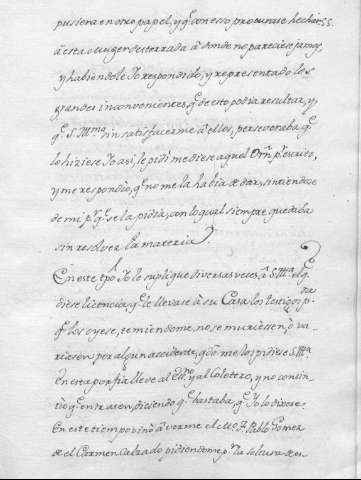 pusiera en otro papel, y q̃ con esso, procurase hechar
a esta muger desterrada a donde no pareciese jamas,
y habiendole Yo respondido, y representado los
grandes inconvenientes, q̃ de esto podia resultar, y
q̃ S. Illma sin satisfacerme a ellos, perseveraba q̃
lo hiziese Yo asi, le pidi me diese aquel Orn pr escrito,
y me respondio, q̃ no me la habia de dar, sintiendose
de mi pr q̃ se la pidia, con lo qual siempre quedaba
sin resolver la materia
En este tpo Yo le suplique diversas veces, a S. Illma el q̃
diese licencia, q̃ le llevase a su Casa los testigos pa
q̃ los oyese, temiendome, no se muriesen, o va-
riasen por algun accidente, q̃do me los pidiese S. Illma
En esta porfia lleve al y al Coletero, y no consin-
tio q̃ entrasen, diciendo q̃ bastaba, q̃ Yo lo dixese.
En este tiempo vino a verme el Mo. F. Pablo Gomez
de el Carmen Calzado pidiendome pr la soltura de